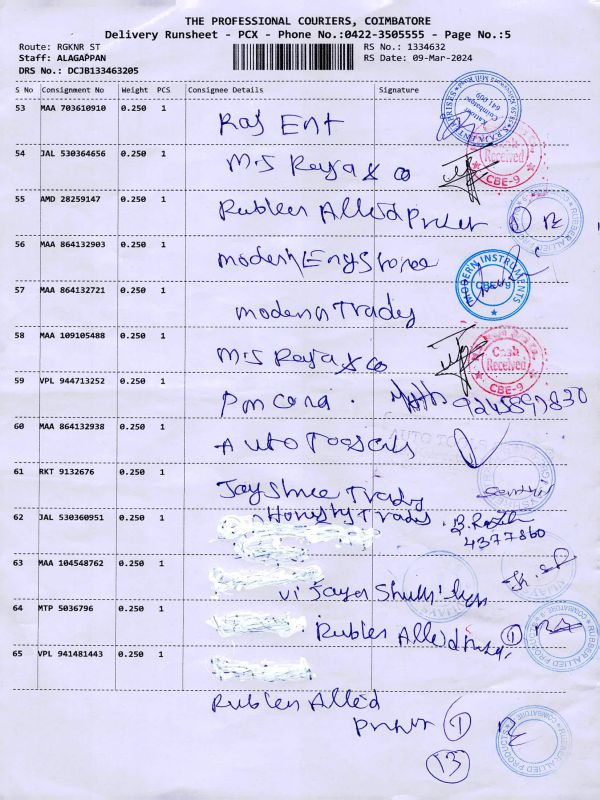 THE PROFESSIONAL COURIERS, COIMBATORE
Delivery Runsheet - PCX - Phone No.:0422-3505555 - Page No.:5
Route: RGKNR ST RS No.: 1334632
Staff: ALAGAPPAN RS Date: 09-Mar-2024
DRS No.: DCJB133463205
S No Consignment No Weight PCS Consignee Details Signature
53 MAA 703610910 0.250 1
Raj Ent
54 JAL 530364656 0.250 1
M.S Raja & co
Cash Received
CBE-9
55 AMD 28259147 0.250 1
Rubber Allied 1
56 MAA 864132903 0.250 1
modern Engg
MODERN INSTRUMENTS
CBE-9
57 MAA 864132721 0.250 1
modern Tradg
58 MAA 109105488 0.250 1
M.S Raja & co
Cash Received
CBE-9
59 VPL 944713252 0.250 1
9245897830
60 MAA 864132938 0.250 1
Auto
61 RKT 9132676 0.250 1
Jay Shree Tradg
62 JAL 530360951 0.250 1
Honesty Trades
4377860
63 MAA 104548762 0.250 1
Vijaya
64 MTP 5036796 0.250 1
Rubber Allied 1
RUBBER ALLIED PRODUCTS
COIMBATORE
65 VPL 941481443 0.250 1
Rubber Allied
1
RUBBER ALLIED PRODUCTS
COIMBATORE
13